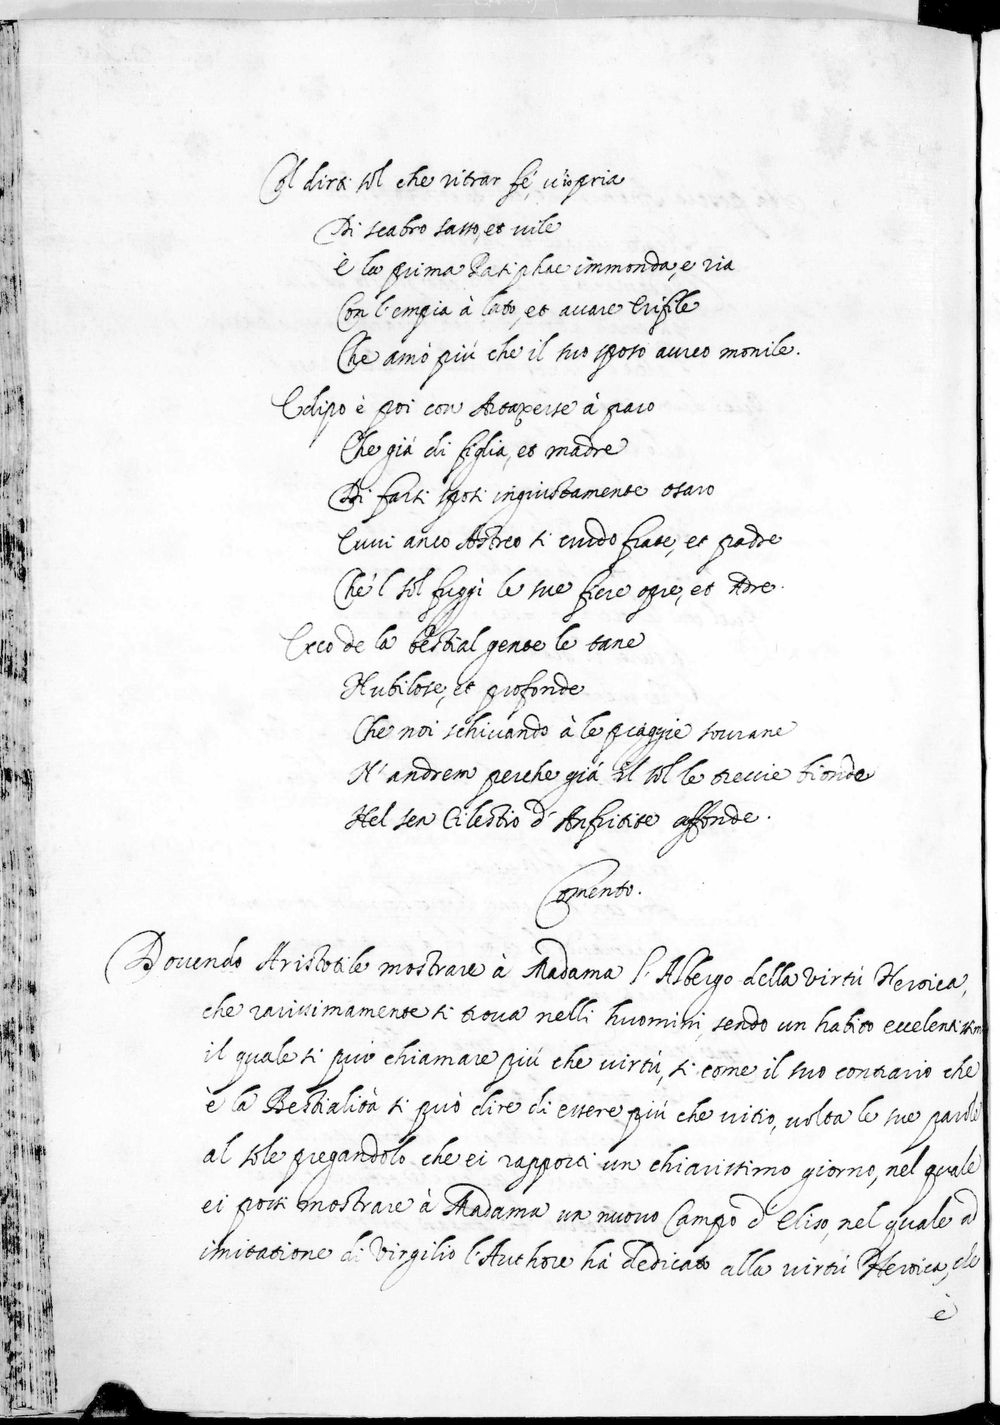 Col dirti sol che vitrar fé, v'è pria
Di scabro sasso, et vile
È la prima Pasiphae immonda, e ria
Con l'empia à lato, et avare Erifile
Che amò più che il suo sposo aureo monile.
Edipo è poi con Artaxerse à paro
Che già di figlia, et madre
Di farsi sposi ingiustamente osaro
Euui anco Astreo si crudo frate, et padre
Che'l sol fuggì le sue fiere opre, et Adre.
Ecco de la bestial gente le tane
Nubilose, et profonde
Che noi schivando à le piaggie sourane
N'andrem perche già il sol le treccie bionde
Nel sen Cilestro d'Anfitite affonde.
Comento.
Dovendo Aristotile mostrare à Madama l'Albergo della virtù Heroica,
che rarissimamente si trova nelli huomini, sendo un habito eccelentissimo
il quale si può chiamare più che virtù, si come il suo contrario che
è la Bestialità si può dire di essere più che vitio, volta le sue parole
al sole pregandolo che ei rapporti un chiarissimo giorno, nel quale
ei possi mostrare à Madama un nuovo Campo d'Eliso, nel quale ad
imitatione di Virgilio l'Authore ha dedicato alla virtù Heroica, che
è